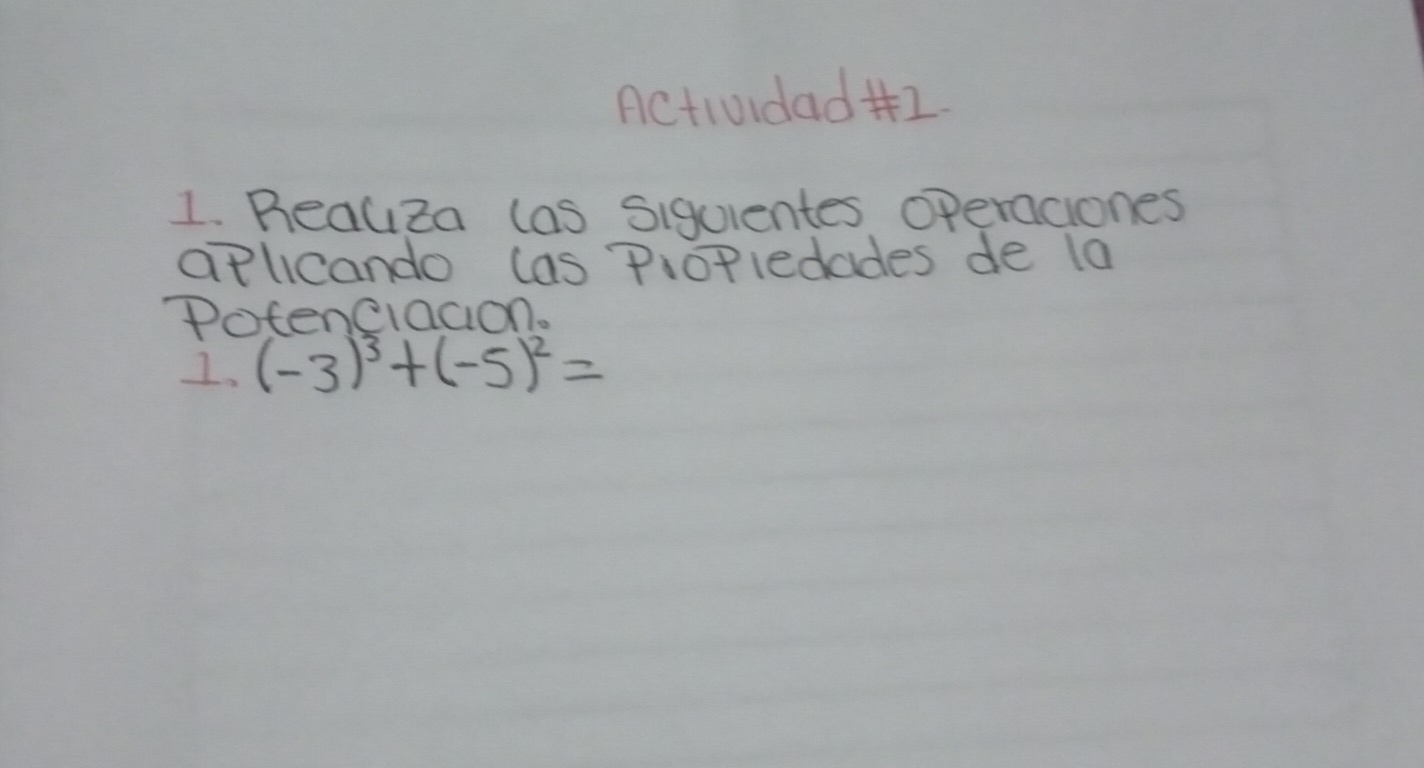 Actividad #1.
1. Realiza las siguientes operaciones
aplicando las propiedades de la
Potenciacion.
1. (-3)³+(-5)²=